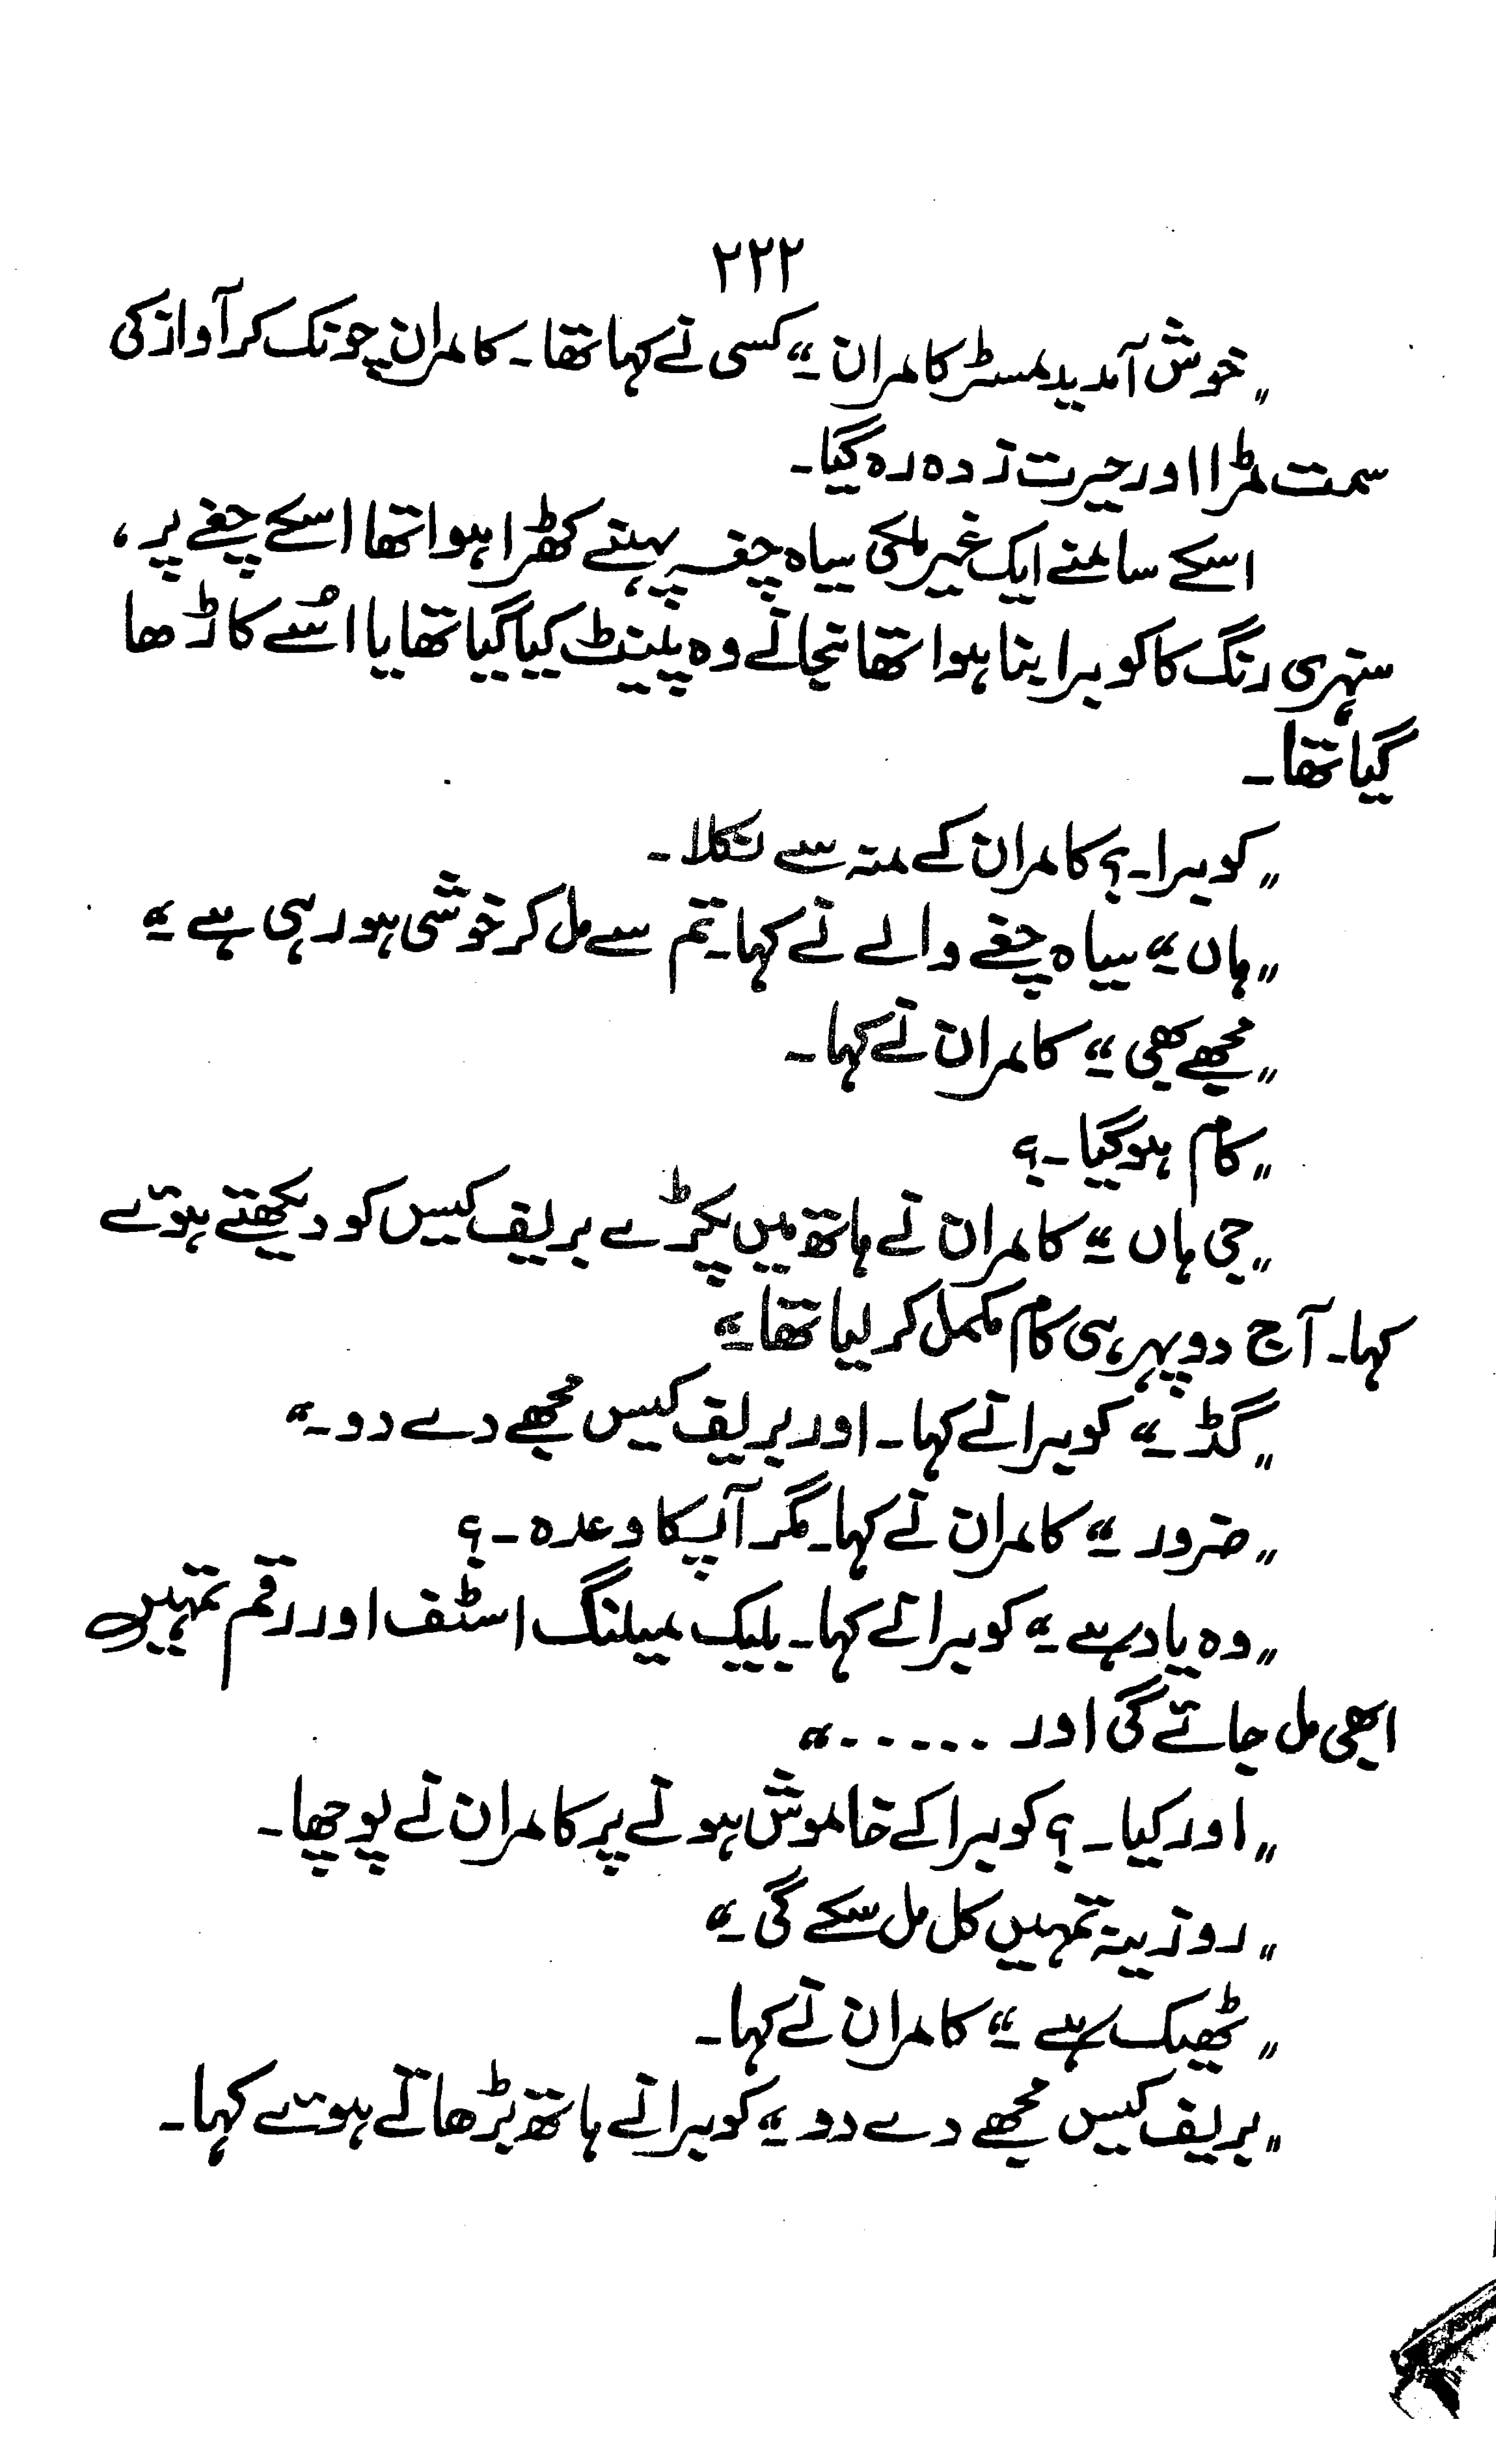 ۲۲۲
"خوش آمدید مسٹر کامران ۔" کسی نے کہا تھا۔ کامران چونک کر آواز کی
سمت مڑا اور حیرت زدہ رہ گیا۔
اسکے سامنے ایک غیر ملکی سیاہ چغہ پہنے کھڑا ہوا تھا اسکے چغے پر،
سنہری رنگ کا کوبرا بنا ہوا تھا نجانے وہ پینٹ کیا گیا تھا یا اُسے کاڑھا
گیا تھا۔
"کوبرا۔؟ کامران کے منہ سے نکلا۔
"ہاں ۔" سیاہ چغے والے نے کہا۔ تم سے مل کر خوشی ہو رہی ہے ۔"
"مجھے بھی ۔" کامران نے کہا۔
"کام ہو گیا۔؟
"جی ہاں ۔" کامران نے ہاتھ میں پکڑے بریف کیس کو دیکھتے ہوئے
کہا۔ آج دوپہر ہی کام مکمل کر لیا تھا ۔"
"گڈ ۔" کوبرا نے کہا۔ اور بریف کیس مجھے دے دو۔"
"ضرور ۔" کامران نے کہا۔ مگر آپکا وعدہ۔؟
"وہ یاد ہے ۔" کوبرا نے کہا۔ بلیک میلنگ اسٹف اور رقم تمہیں
ابھی مل جائے گی اور ......"
"اور کیا۔؟ کوبرا کے خاموش ہونے پر کامران نے پوچھا۔
"روزینہ تمہیں کل مل سکے گی ۔"
"ٹھیک ہے ۔" کامران نے کہا۔
"بریف کیس مجھے دے دو ۔" کوبرا نے ہاتھ بڑھاتے ہوئے کہا۔